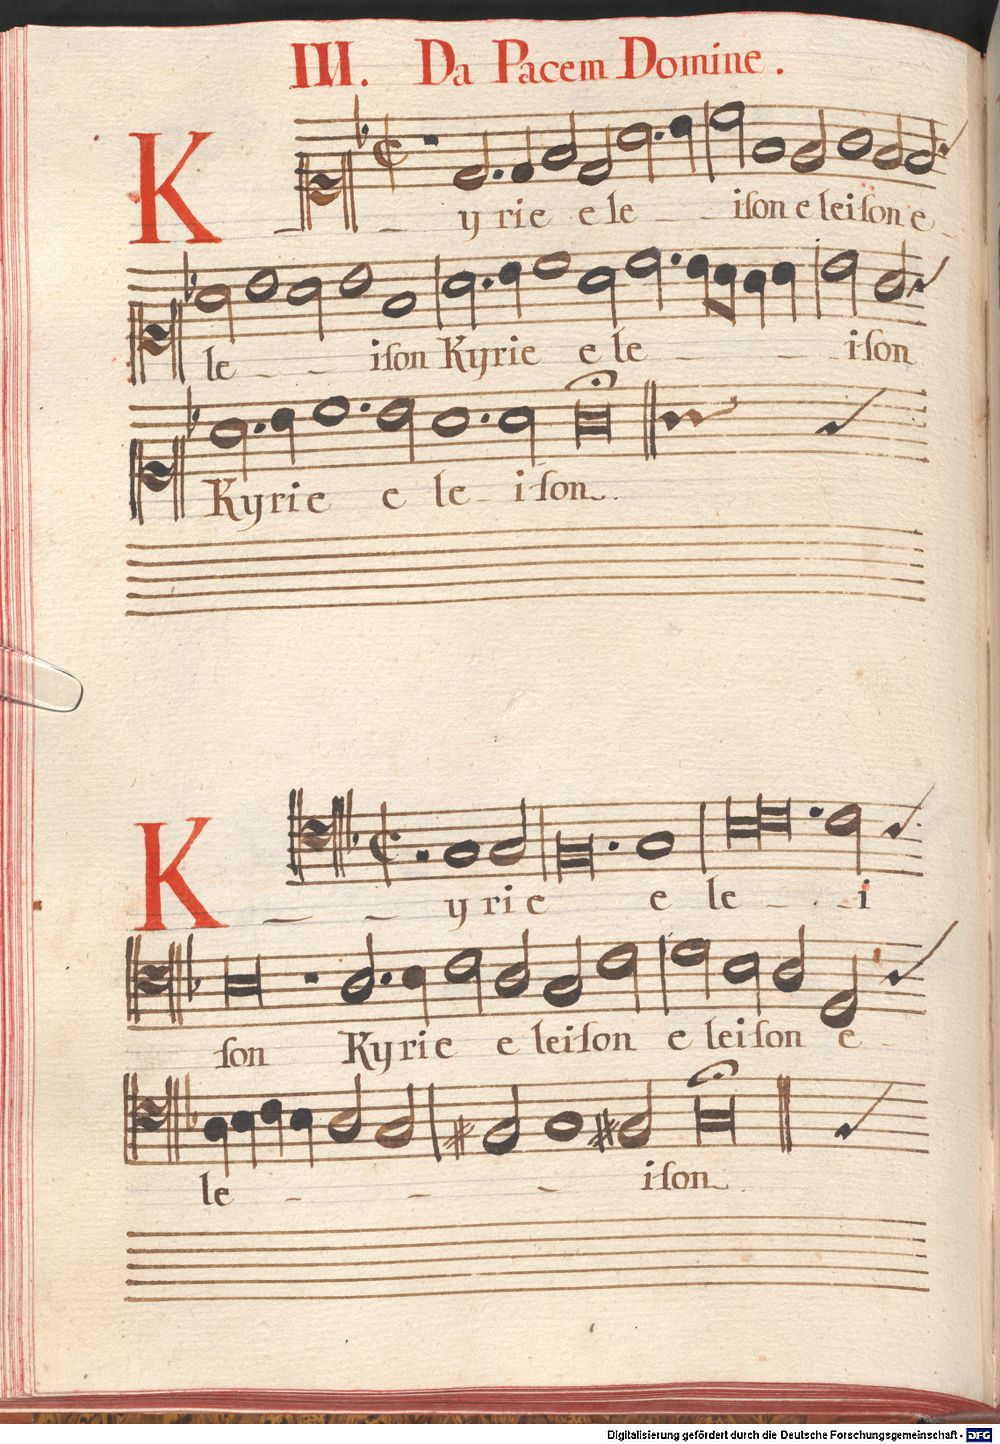 III. Da Pacem Domine.
K _ _ y rie e le _ _ iſon e leiſon e _
le _ _ iſon Kyrie e le _ _ _ iſon
Kyrie e le _ iſon.
K _ _ y rie e le _ . _ i
ſon Kyrie e leiſon e leiſon e _
le _ _ _ iſon.
Digitalisierung gefördert durch die Deutsche Forschungsgemeinschaft - DFG